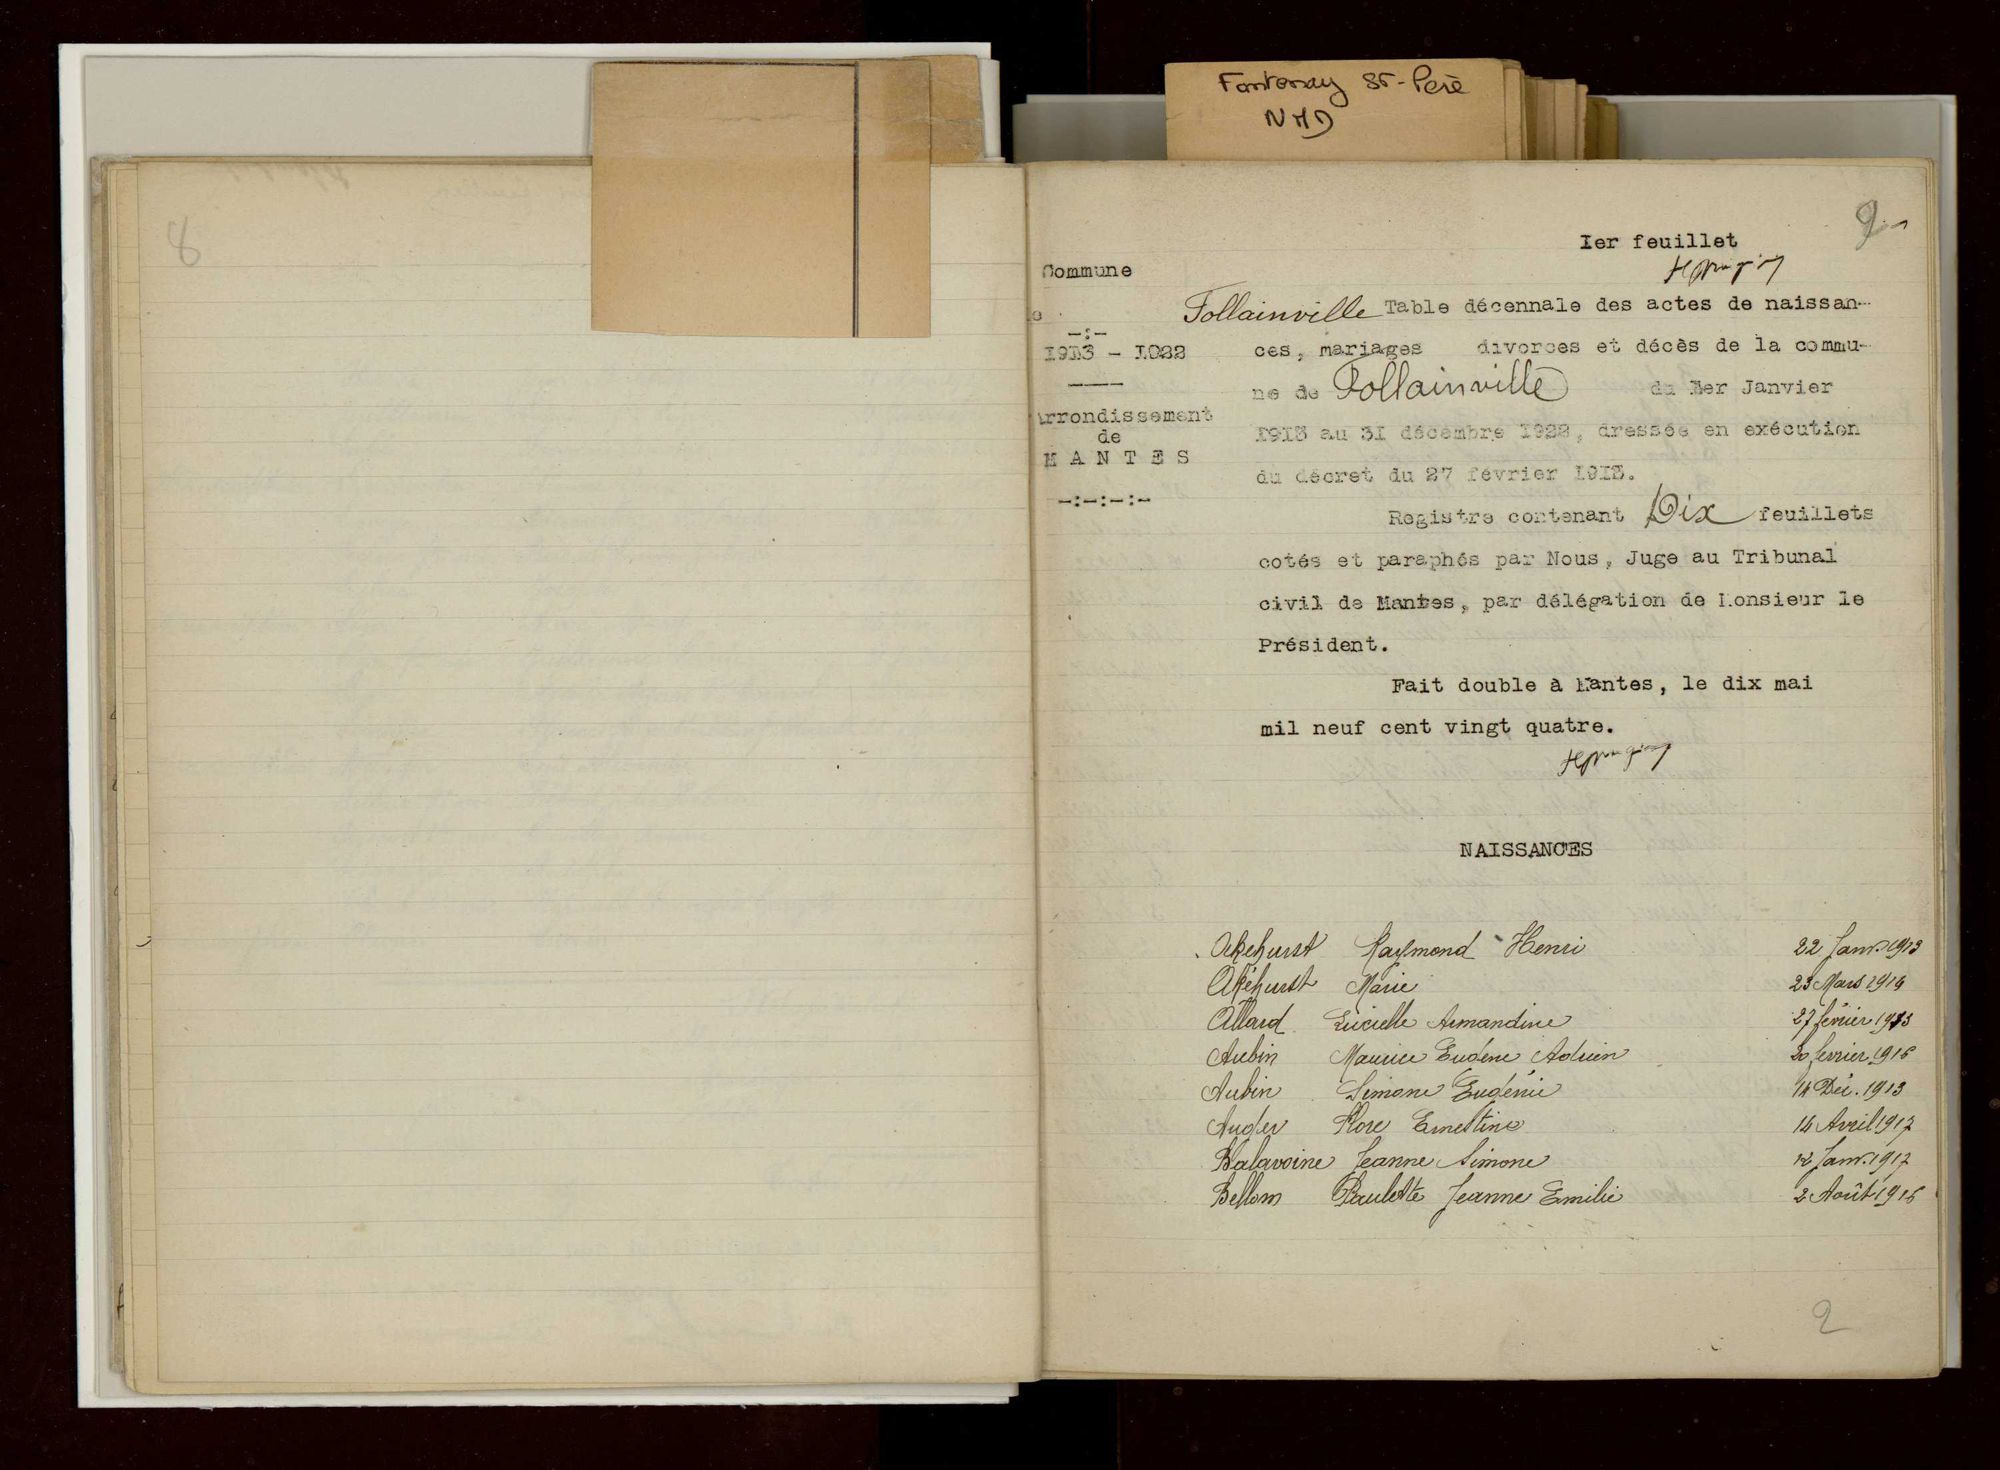 Fontenay St-Père
NMD
8
9
Ier feuillet
Commune
Follainville Table décennale des actes de naissan-
-:-
1913 - 1922
ces, mariages divorces et décès de la commu-
ne de Follainville du Ier Janvier
Arrondissement
de
MANTES
1913 au 31 décembre 1922, dressée en exécution
du décret du 27 février 1913.
-:-:-:-
Registre contenant Dix feuillets
cotés et paraphés par Nous, Juge au Tribunal
civil de Mantes, par délégation de Monsieur le
Président.
Fait double à Mantes, le dix mai
mil neuf cent vingt quatre.
NAISSANCES
Akehurst Raymond Henri 22 Janv. 1913
Akéhurst Marie 23 Mars 1914
Allard Lucielle Armandine 27 février 1913
Aubin Maurice Eugène Adrien 20 février 1916
Aubin Simone Eugénie 14 Déc. 1913
Auger Rose Ernestine 14 Avril 1917
Balavoine Jeanne Simone 12 Janv. 1917
Bellom Paulette Jeanne Emilie 2 Août 1916
2